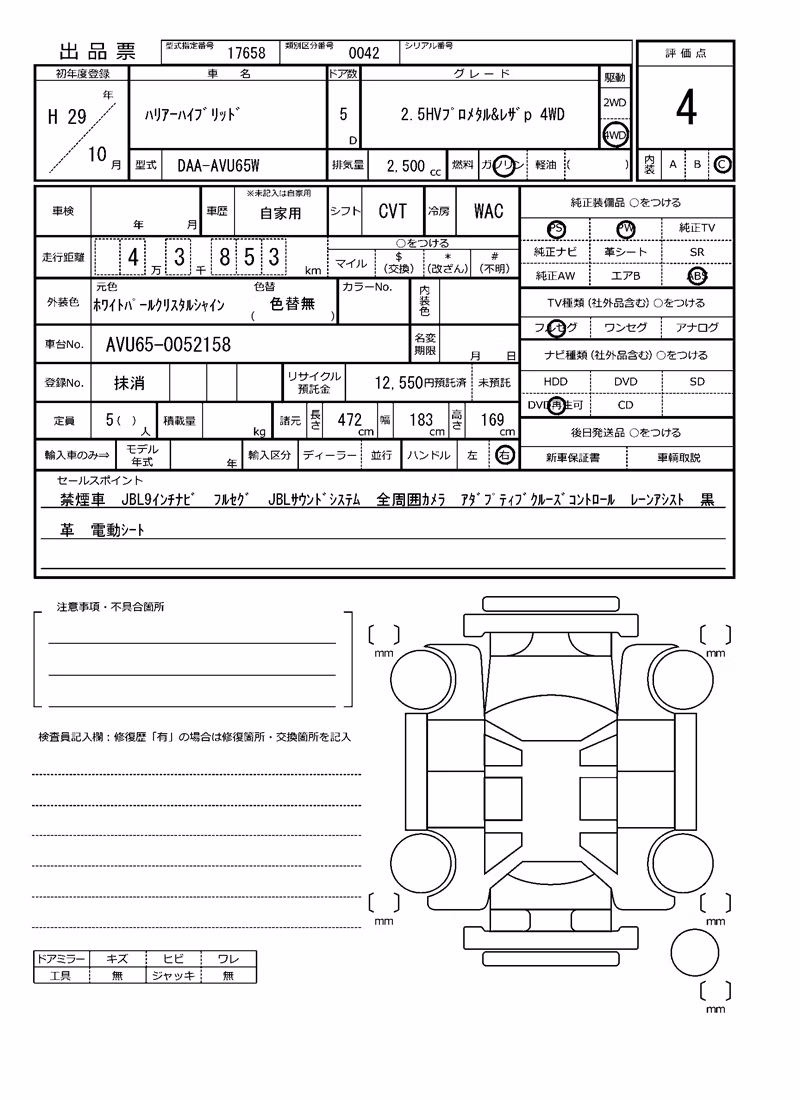 出品票 型式指定番号 17658 類別区分番号 0042 シリアル番号
初年度登録 車名 ドア数 グレード 駆動 評価点
H 29 年 10 月 ハリアーハイブリッド 5 D 2.5HVプロメタル&レザp 4WD 2WD 4WD 4
型式 DAA-AVU65W 排気量 2,500 cc 燃料 ガソリン 軽油 ( ) 内装 A B C
車検 年 月 車歴 ※未記入は自家用 自家用 シフト CVT 冷房 WAC 純正装備品 ○をつける
PS PW 純正TV
走行距離 4 万 3 千 8 5 3 km ○をつける
マイル $ (交換) * (改ざん) # (不明)
純正ナビ 革シート SR
純正AW エアB ABS
外装色 元色 ホワイトパールクリスタルシャイン 色替 ( 色替無 ) カラーNo. 内装色
TV種類(社外品含む)○をつける
フルセグ ワンセグ アナログ
車台No. AVU65-0052158 名変期限 月 日
ナビ種類(社外品含む)○をつける
登録No. 抹消 リサイクル預託金 12,550円預託済 未預託
HDD DVD SD
DVD再生可 CD
定員 5( )人 積載量 kg 諸元 長さ 472 cm 幅 183 cm 高さ 169 cm
後日発送品 ○をつける
輸入車のみ⇒ モデル年式 年 輸入区分 ディーラー 並行 ハンドル 左 右 新車保証書 車輌取説
セールスポイント
禁煙車 JBL9インチナビ フルセグ JBLサウンドシステム 全周囲カメラ アダプティブクルーズコントロール レーンアシスト 黒
革 電動シート
注意事項・不具合箇所
mm mm
検査員記入欄:修復歴「有」の場合は修復箇所・交換箇所を記入
mm mm
ドアミラー キズ ヒビ ワレ
工具 無 ジャッキ 無
mm